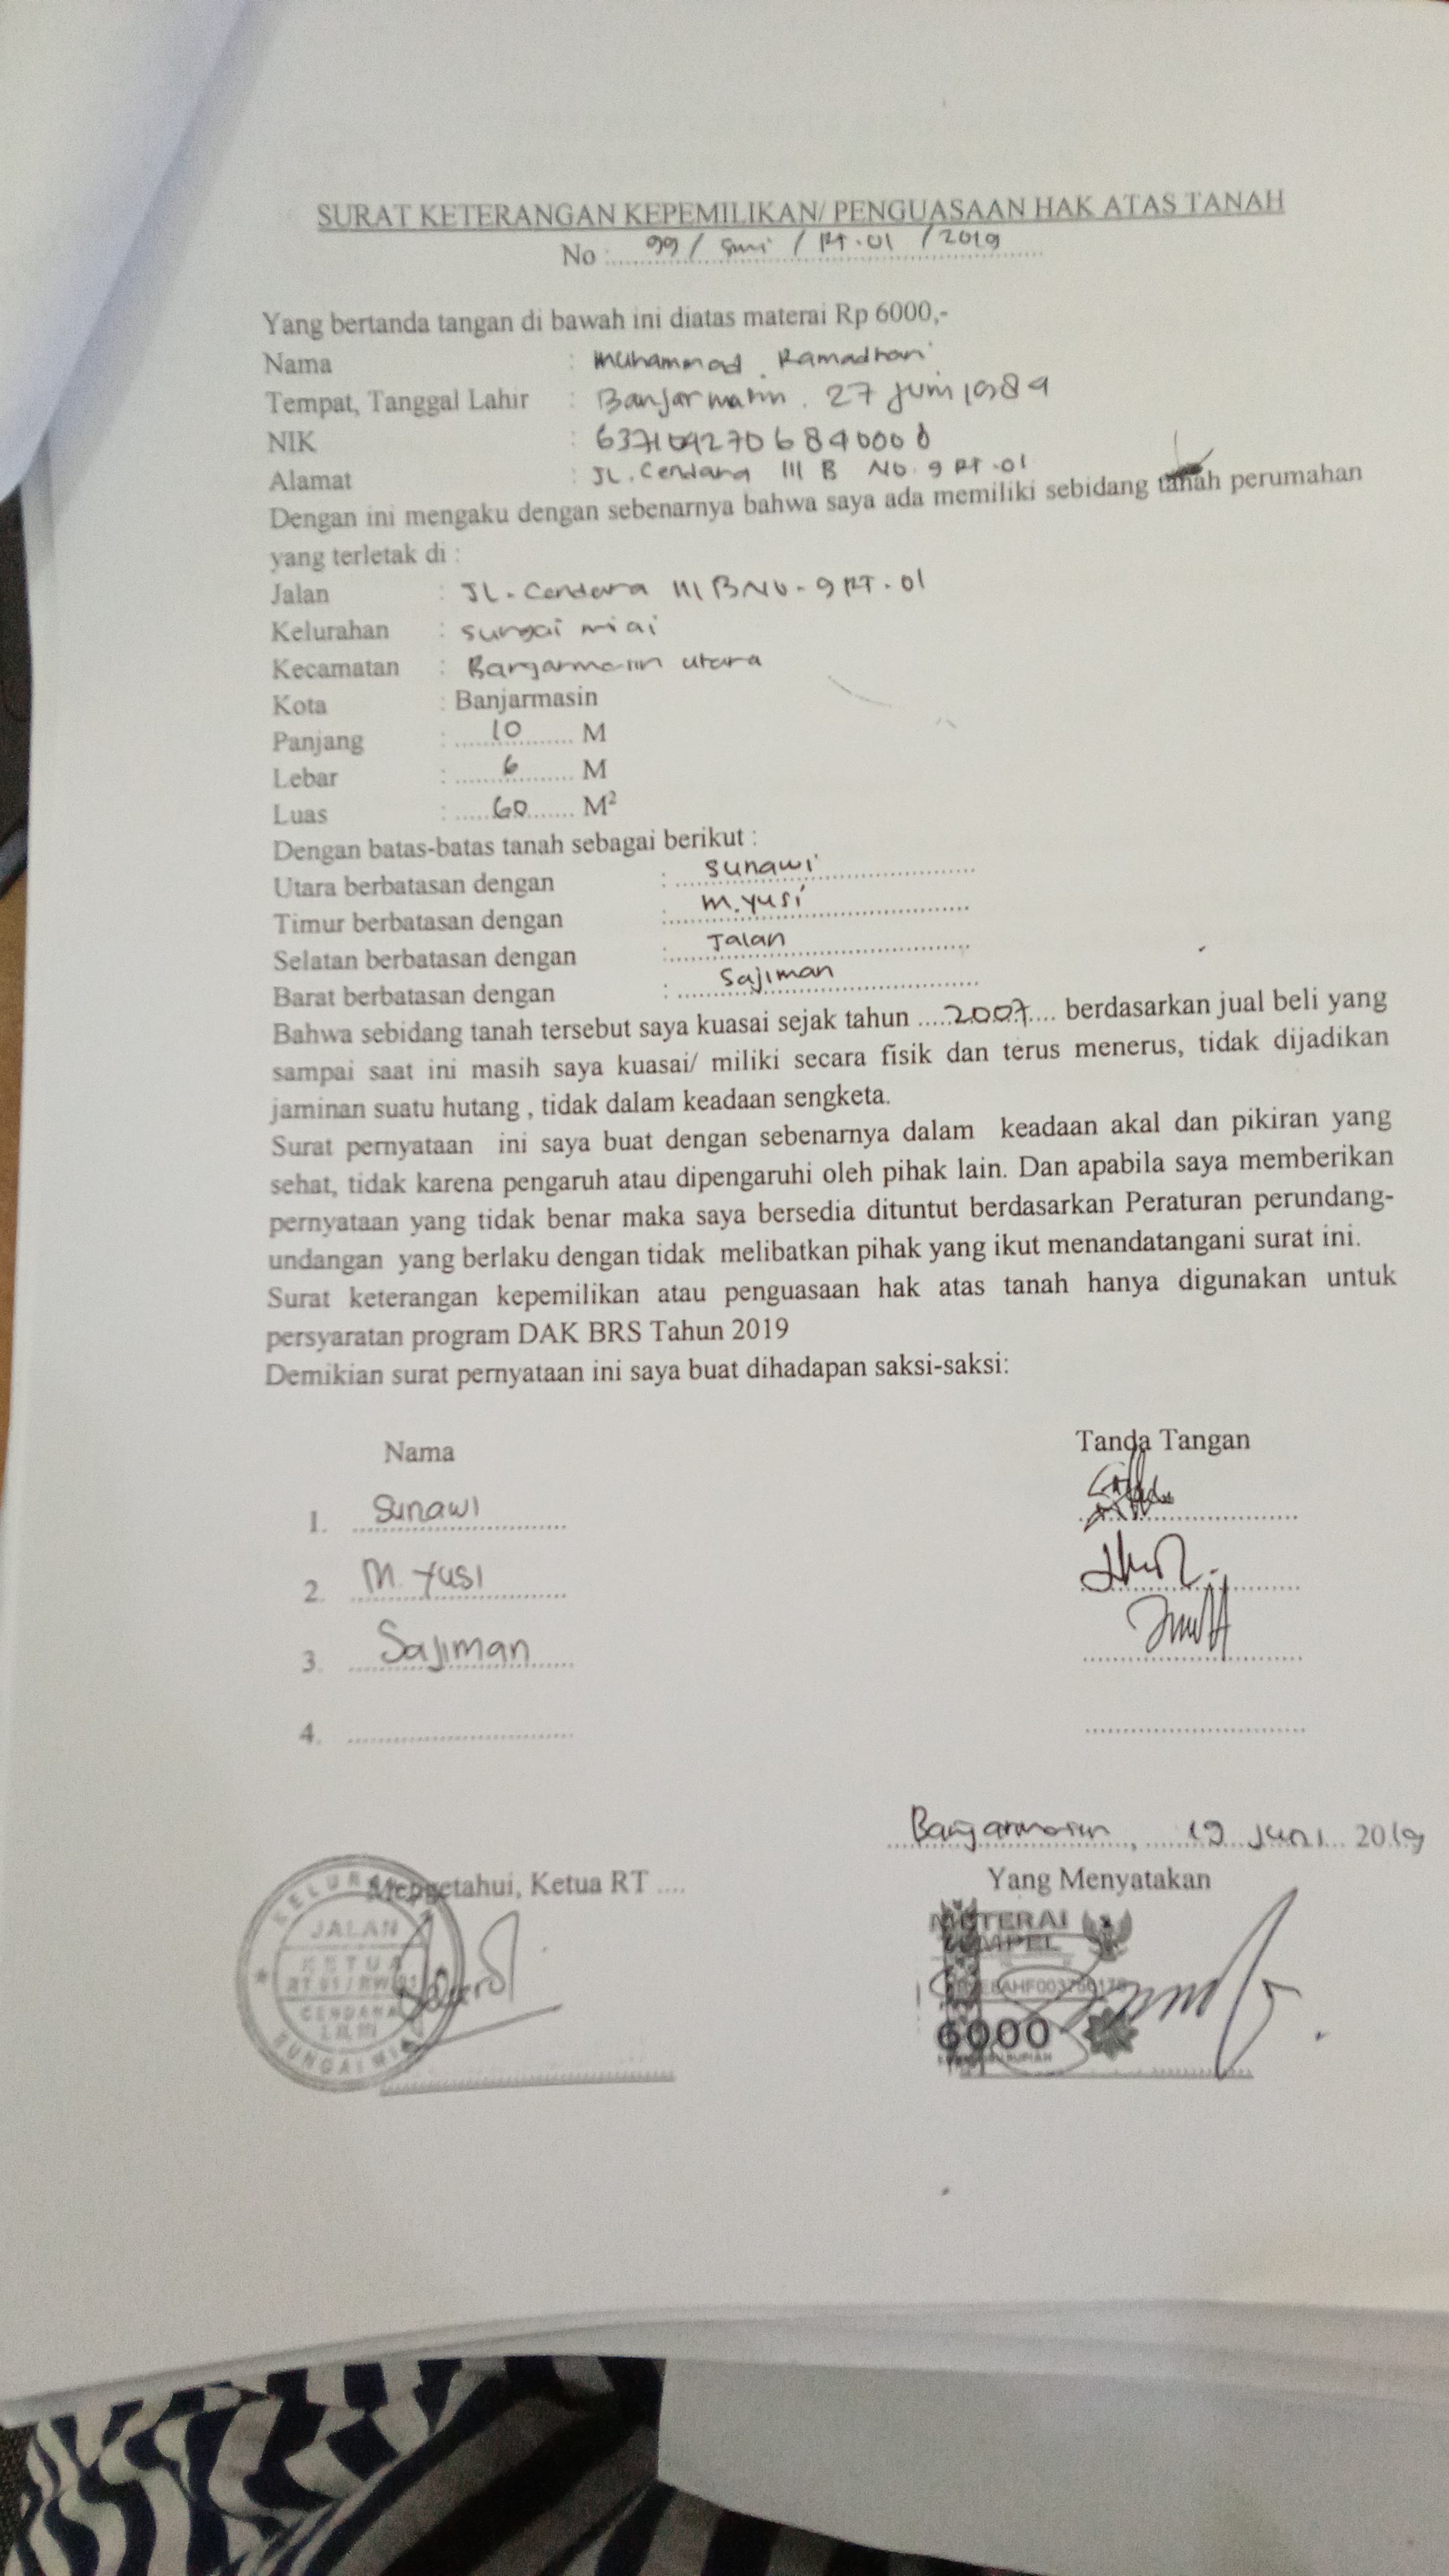 SURAT KETERANGAN KEPEMILIKAN/ PENGUASAAN HAK ATAS TANAH
No : 99 / Smi / RT.01 / 2019
Yang bertanda tangan di bawah ini diatas materai Rp 6000,-
Nama : Muhammad Ramadhani
Tempat, Tanggal Lahir : Banjarmasin. 27 Juni 1984
NIK :
Alamat : JL. Cendana III B No. 9 RT.01
Dengan ini mengaku dengan sebenarnya bahwa saya ada memiliki sebidang tanah perumahan
yang terletak di :
Jalan : JL. Cendana III B No. 9 RT. 01
Kelurahan : sungai miai
Kecamatan : Banjarmasin utara
Kota : Banjarmasin
Panjang : 10 M
Lebar : 6 M
Luas : 60 M²
Dengan batas-batas tanah sebagai berikut :
Utara berbatasan dengan : Sunawi
Timur berbatasan dengan : M. Yusi
Selatan berbatasan dengan : Jalan
Barat berbatasan dengan : Sajiman
Bahwa sebidang tanah tersebut saya kuasai sejak tahun 2007 berdasarkan jual beli yang
sampai saat ini masih saya kuasai/ miliki secara fisik dan terus menerus, tidak dijadikan
jaminan suatu hutang , tidak dalam keadaan sengketa.
Surat pernyataan ini saya buat dengan sebenarnya dalam keadaan akal dan pikiran yang
sehat, tidak karena pengaruh atau dipengaruhi oleh pihak lain. Dan apabila saya memberikan
pernyataan yang tidak benar maka saya bersedia dituntut berdasarkan Peraturan perundang-
undangan yang berlaku dengan tidak melibatkan pihak yang ikut menandatangani surat ini.
Surat keterangan kepemilikan atau penguasaan hak atas tanah hanya digunakan untuk
persyaratan program DAK BRS Tahun 2019
Demikian surat pernyataan ini saya buat dihadapan saksi-saksi:
Nama Tanda Tangan
1. Sunawi
2. M. Yusi
3. Sajiman
4.
Banjarmasin, 19 Juni 2019
Mengetahui, Ketua RT .... Yang Menyatakan
JALAN
KETUA
RT 01 / RW 01
CENDANA
SUNGAI MIAI
METERAI
TEMPEL
6000